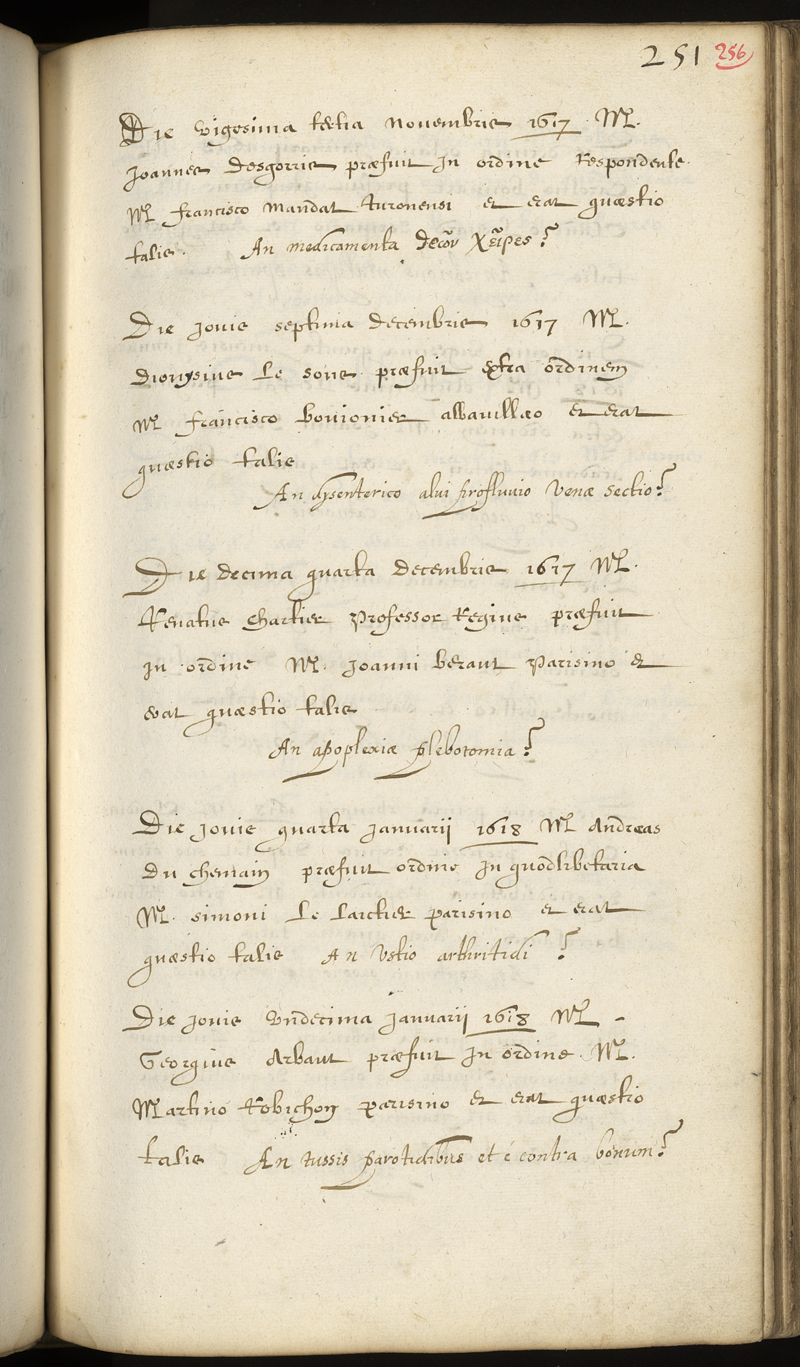 251 256
Die vigesima tertia Novembris 1617 M.
Joannes Desgorris præfuit In ordine Respondente
M Francisco Mandat turonensi et erat quæstio
talis. An medicamenta θεῶν χεῖρες?
Die Jovis septima decembris 1617 M.
Dionysius Le Soue præfuit extra ordinem
M Francisco Bouionier et erat
quæstio talis
An dysenterico alui profluuio Venæ sectio?
Die decima quarta decembris 1617 M.
Renatus Chartier Professor Regius præfuit
In ordine M. Joanni Beraut Parisino et
erat quæstio talis
An apoplexiæ phlebotomia?
Die Jovis quarta Januarij 1618 M Andræas
Du Chemain præfuit ordine In quodlibetaria
M. Simoni Le Larctier parisino et erat
quæstio talis An Vstio arthritidi?
Die Jovis Vndecima Januarij 1618 M -
Georgius Arbaut præfuit In ordine M.
Martino Robichon parisino et erat quæstio
talis An tussis parotidibus et è contra bonum?